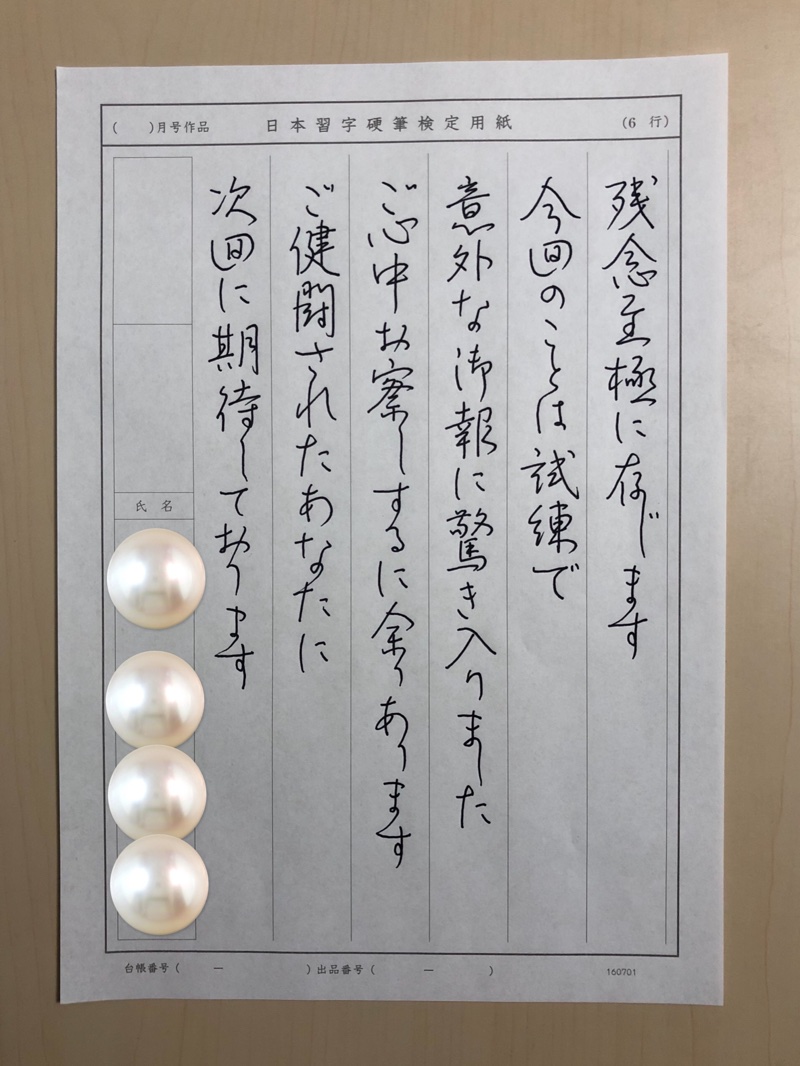 （　）月号作品　日本習字硬筆検定用紙　（6 行）
残念至極に存じます
今回のことは試練で
意外な御報に驚き入りました
ご心中お察しするに余りあります
ご健闘されたあなたに
次回に期待しております
氏名
台帳番号（　－　）出品番号（　－　）　160701